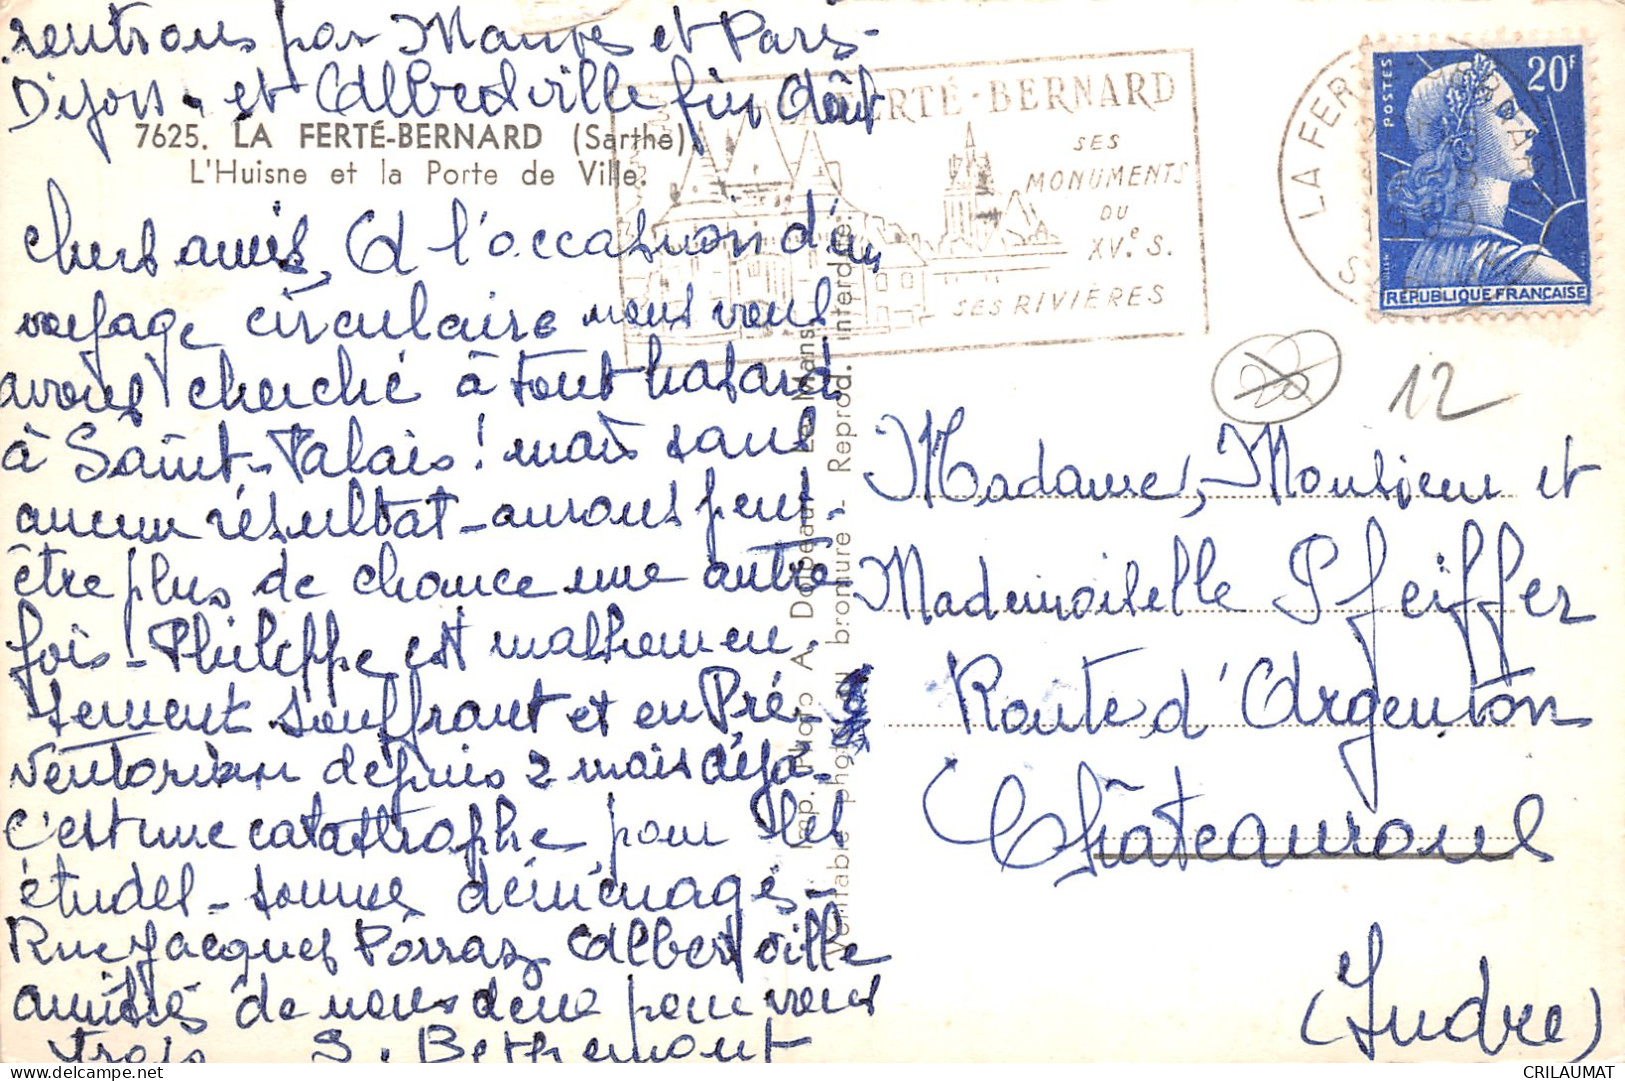 rentrons par Mauves et Paris-
Dijon - et Albertville fin Août
7625. LA FERTÉ-BERNARD (Sarthe).
L'Huisne et la Porte de Ville.
Chers amis, A l'occasion d'un
voyage circulaire nous vous
avons cherché à tout hasard
à Saint-Palais ! mais sans
aucun résultat - aurons peut-
être plus de chance une autre
fois ! - Philippe est malheureu.
sement souffrant et en Pré-
Ventorium depuis 2 mais déjà -
c'est une catastrophe pour les
études - sommes déménagés -
Rue Jacques Porraz Albertville
amitiés de nous deux pour vous
trois S. Bethemont
LA FERTÉ-BERNARD
SES
MONUMENTS
DU
XVe. S.
SES RIVIÈRES
LA FERTE BERNARD
POSTES
20F
RÉPUBLIQUE FRANÇAISE
12
Madame, Monsieur et
Mademoiselle Pfeiffer
Route d'Argenton
Châteauroux
(Indre)
Imp. Photo A. Dolbeau, Le Mans
Véritable photo au bromure - Reprod. interdite.
CRILAUMAT